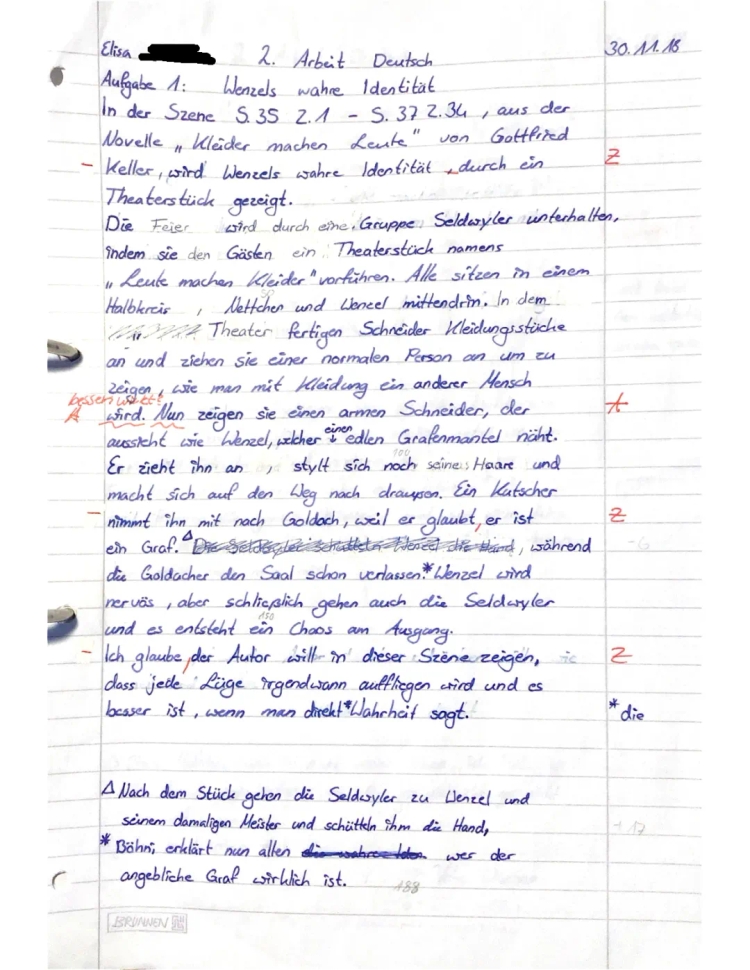 Elisa 2. Arbeit Deutsch 30.11.18
Aufgabe 1: Wenzels wahre Identität
In der Szene S.35 Z.1 - S.37 Z.34, aus der
Novelle „Kleider machen Leute" von Gottfried
- Keller, wird Wenzels wahre Identität, durch ein Z
Theaterstück gezeigt.
Die Feier wird durch eine Gruppe Seldwyler unterhalten,
indem sie den Gästen ein Theaterstück namens
„Leute machen Kleider" vorführen. Alle sitzen in einem
Halbkreis, Nettchen und Wenzel mittendrin. In dem
Theater fertigen Schneider Kleidungsstücke
an und ziehen sie einer normalen Person an um zu
zeigen, wie man mit Kleidung ein anderer Mensch
A wird. Nun zeigen sie einen armen Schneider, der A
aussieht wie Wenzel, welcher einen edlen Grafenmantel näht.
100
Er zieht ihn an, stylt sich noch seine Haare und
macht sich auf den Weg nach draußen. Ein Kutscher
- nimmt ihn mit nach Goldach, weil er glaubt, er ist Z
ein Graf. Δ, während -6
die Goldacher den Saal schon verlassen.* Wenzel wird
nervös, aber schließlich gehen auch die Seldwyler
150
und es entsteht ein Chaos am Ausgang.
- Ich glaube, der Autor will in dieser Szene zeigen, Z
dass jede Lüge irgendwann auffliegen wird und es
besser ist, wenn man direkt* Wahrheit sagt. * die
Δ Nach dem Stück gehen die Seldwyler zu Wenzel und
seinem damaligen Meister und schütteln ihm die Hand,
+17
* Böhni erklärt nun allen wer der
angebliche Graf wirklich ist. 188
BRUNNEN